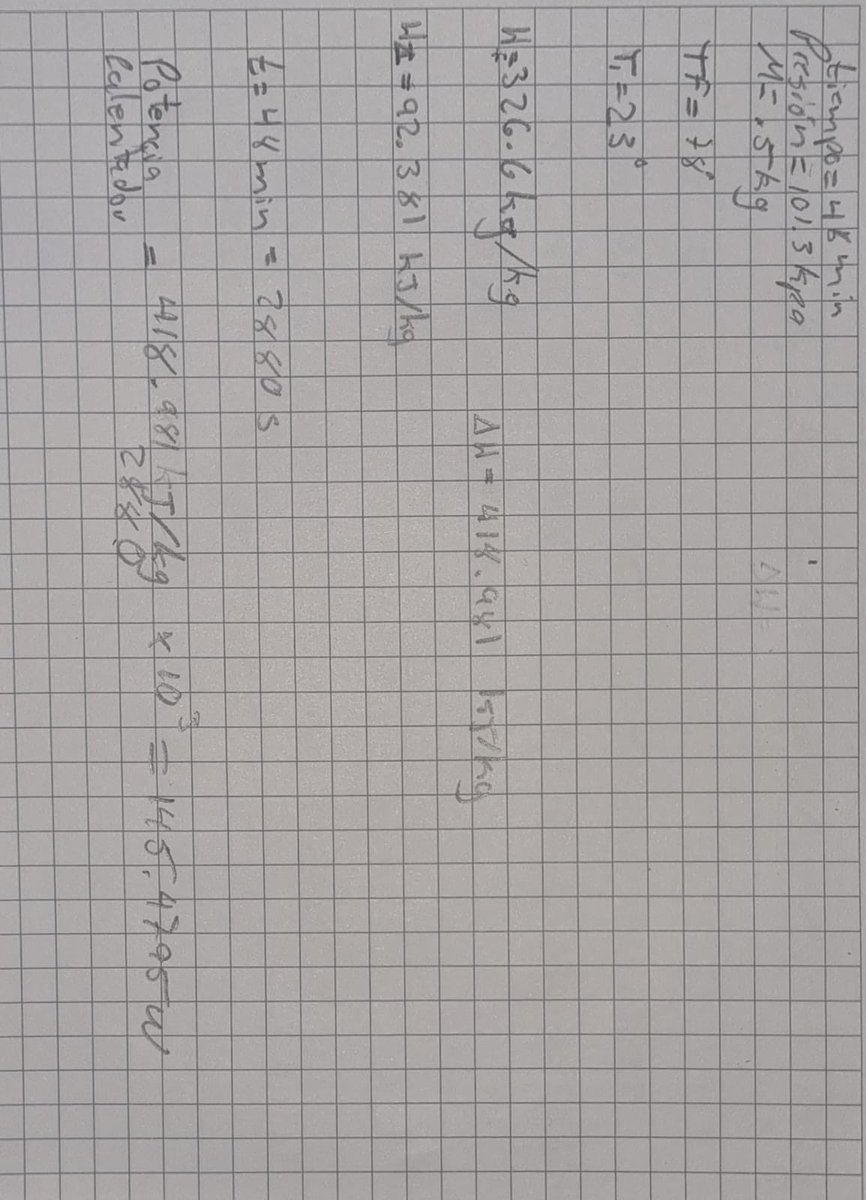 tiempo = 48 min
Presión = 101.3 kpa
M = .5 kg
TF = 78°
T1 = 23°
HF = 326.6 kg/kg
ΔH = 418.981 kJ/kg
HI = 92.381 kJ/kg
t = 48 min = 2880 s
Potencia calentador = 418.981 kJ/kg / 2880 x 10³ = 145.4795 w
ΔH=